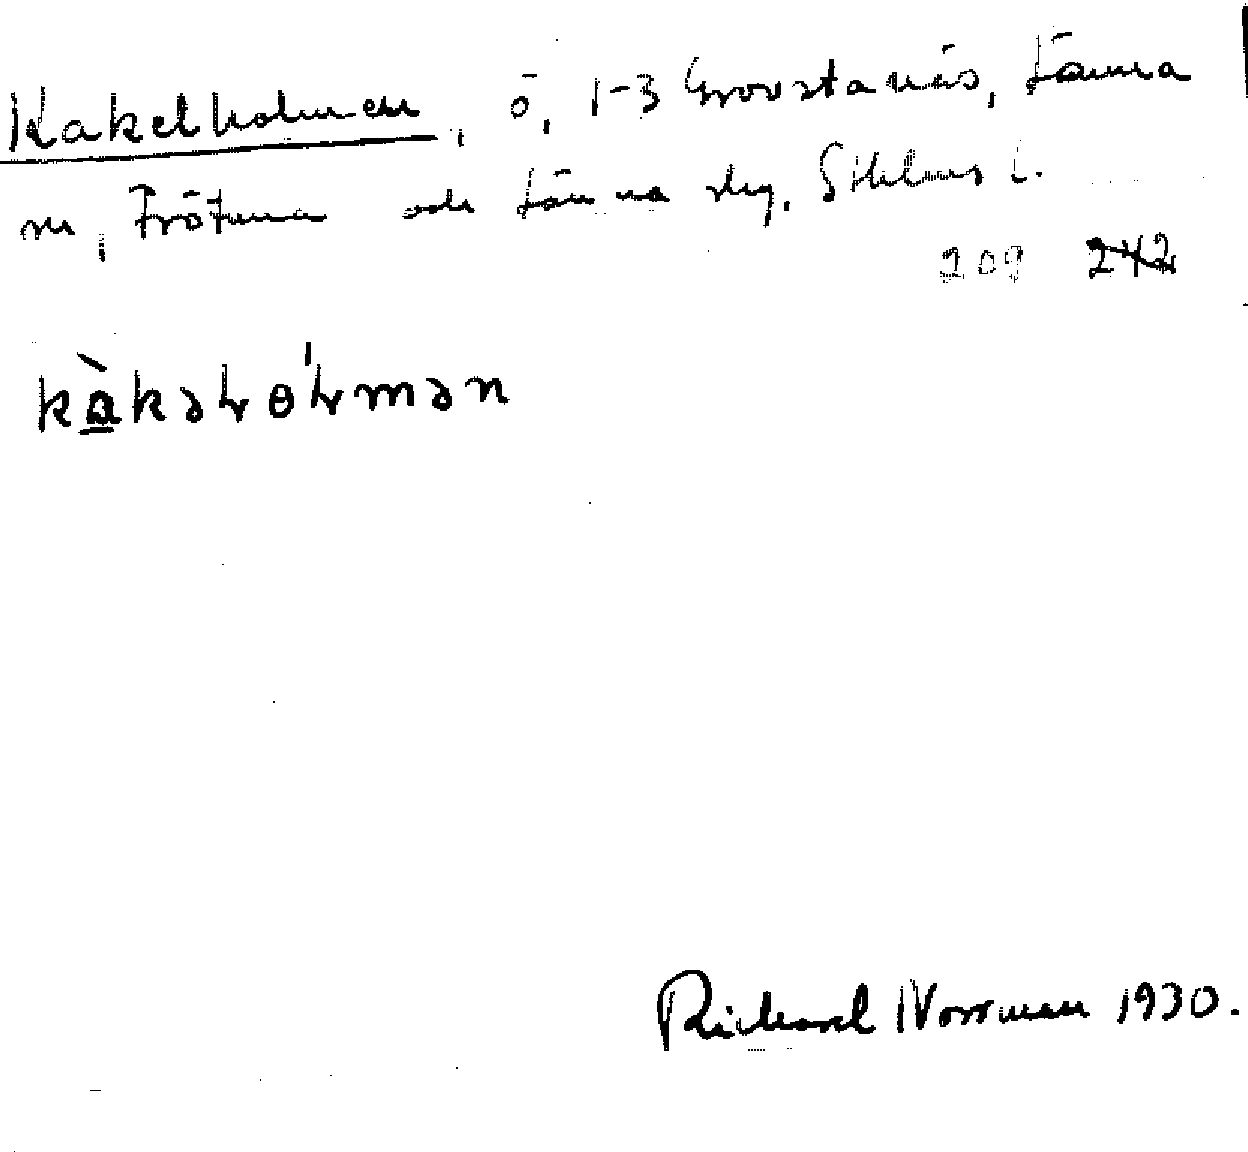 Kakelholmen, ö, 1-3 Grovstanäs, Länna
sn, Frötuna och Länna skg, Sthlms l.
209 242
kàkəłɵ́łmən
Richard Norrman 1930.